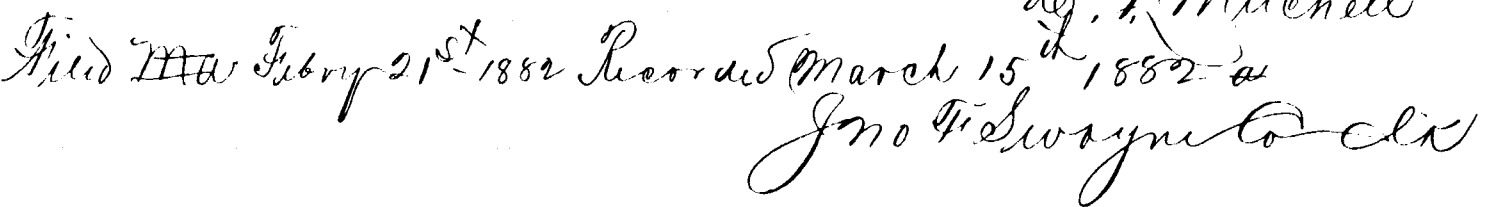 Mitchell
Filed Ma Febry 21st 1882 Recorded March 15th 1882
Jno F Swayne Co Clk